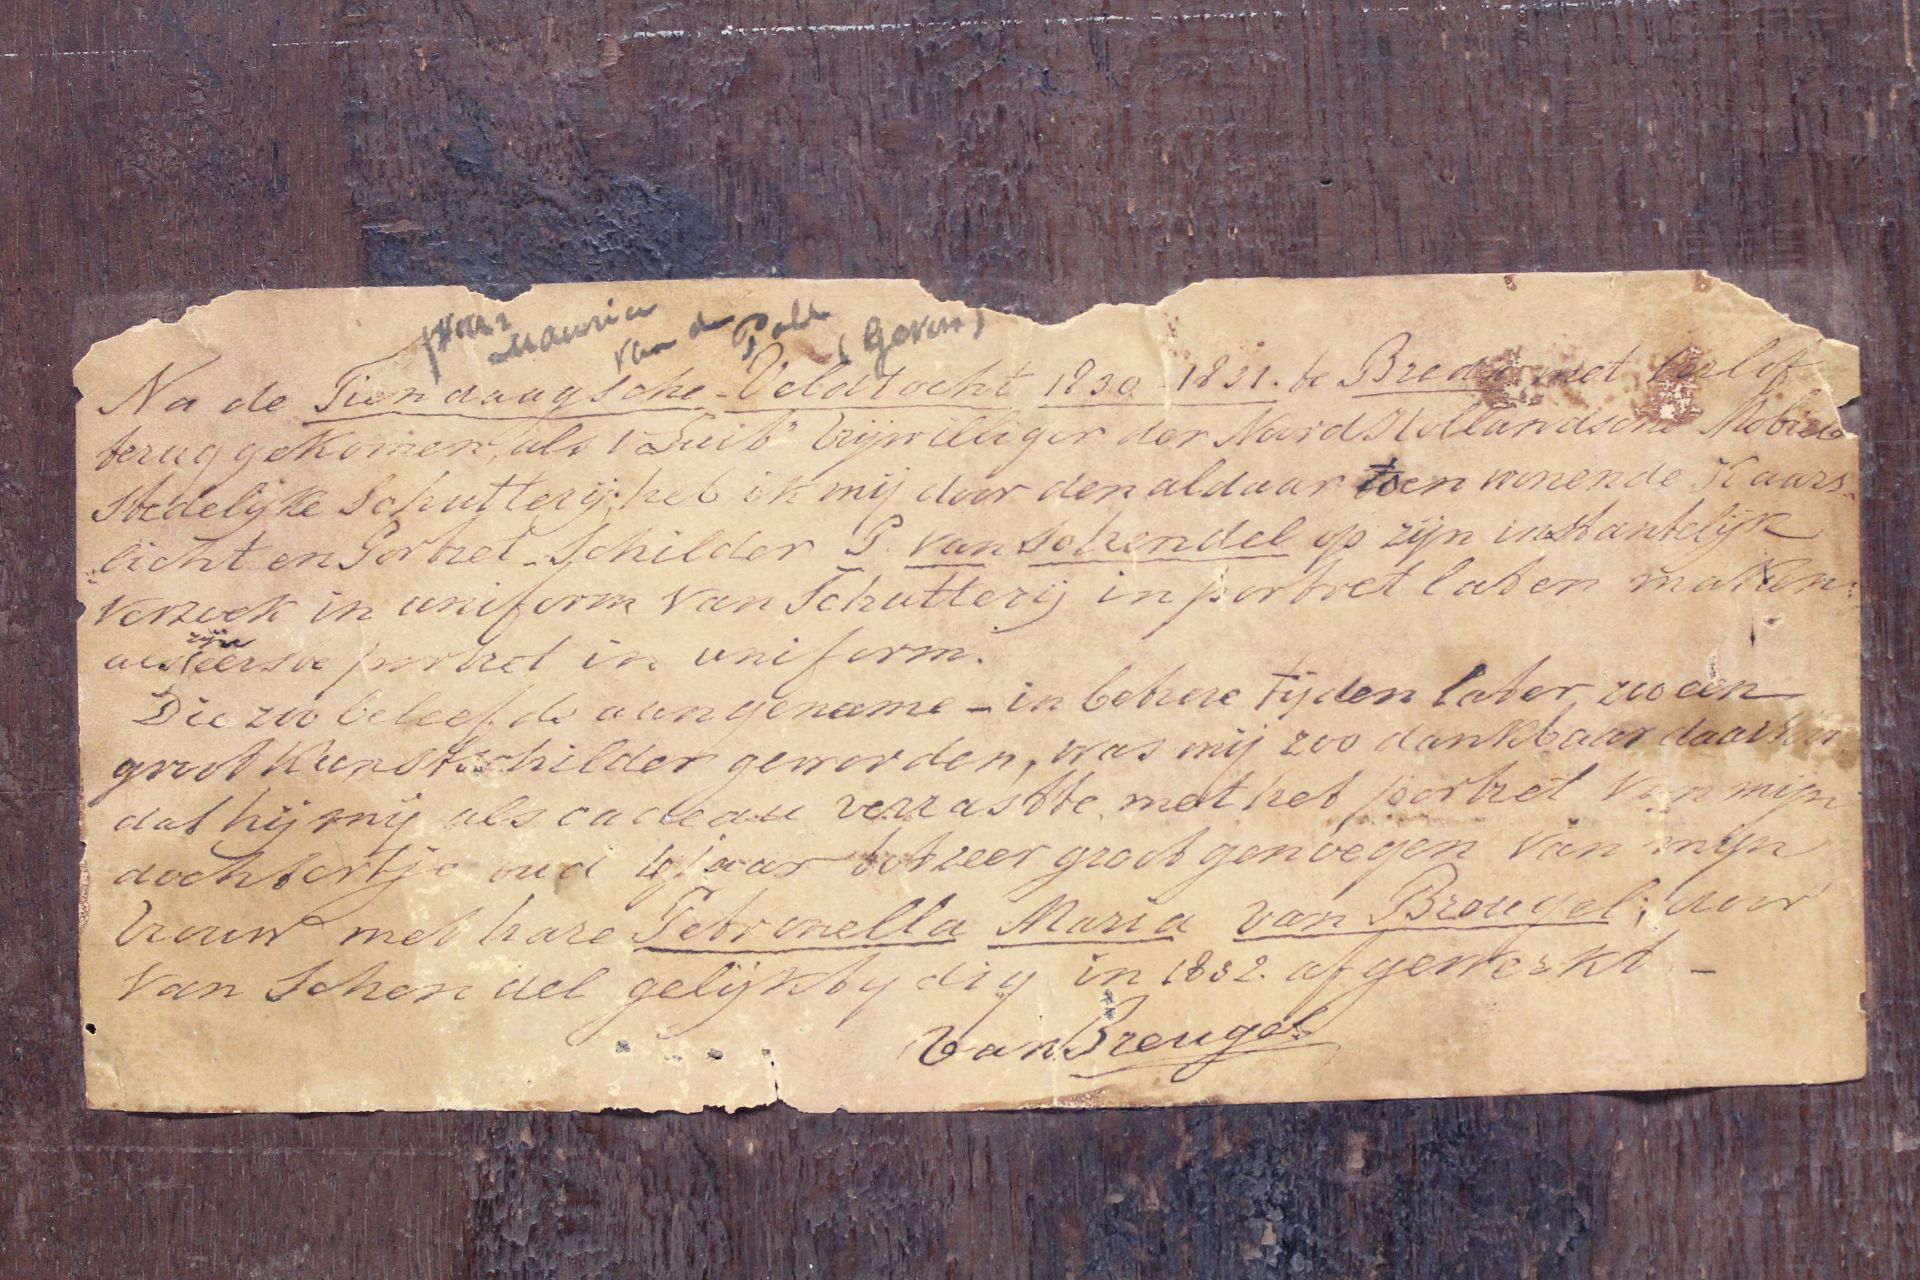 Mauria
van de Polde (Geven)
Na de Tiendaagsche-Veldtocht 1830-1831. te Breda met verlof
teruggekomen, als 1e Luit" Vrijwilliger der Noord Hollandsche Mobiele
stedelijke Schutterij; heb ik mij door den aldaar toen wonende Kaars-
licht en Portret-Schilder P. van Schendel op zijn instantelijk
verzoek in uniform van Schutterij in portret laten maken:
als zijn eerste portret in uniform.
Die zoo beleefde aangename - in betere tijden later zoo een
groot Kunstschilder geworden, was mij zoo dankbaar daarvoor
dat hij mij als cadeau verraste, met het portret van mijn
dochtertje oud jaar tot zeer groot genoegen van mijn
Vrouw met hare Petronella Maria van Breugel; door
Van Schendel gelijktydig in 1832. afgewerkt. -
Van Breugel